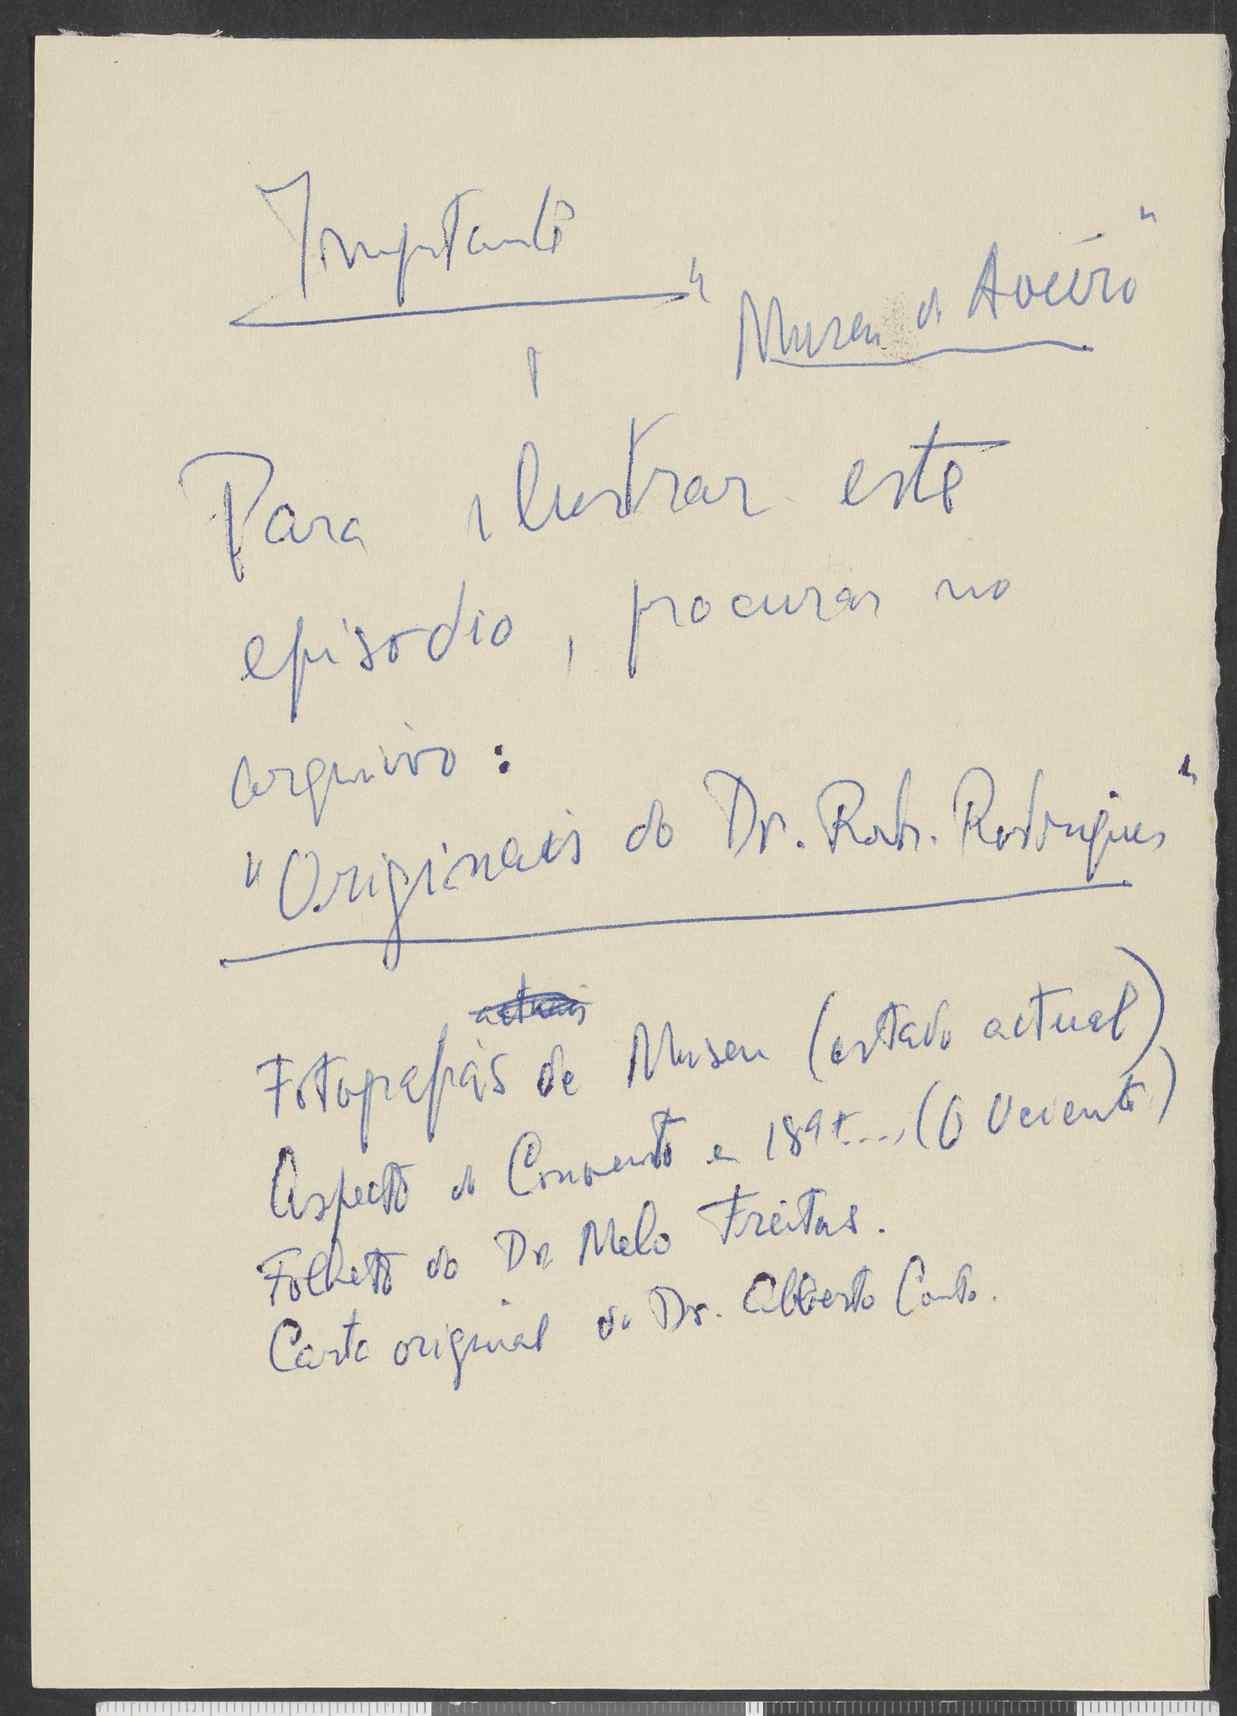 Importante
"Museu de Aveiro"
Para ilustrar este
episodio, procurar no
arquivo:
"Originais do Dr. Rob. Rodrigues"
actuais
Fotografias de Museu (estado actual)
Aspecto do Convento em 189... (O Ocidente)
Folheto do Dr. Melo Freitas.
Carta original do Dr. Alberto Couto.